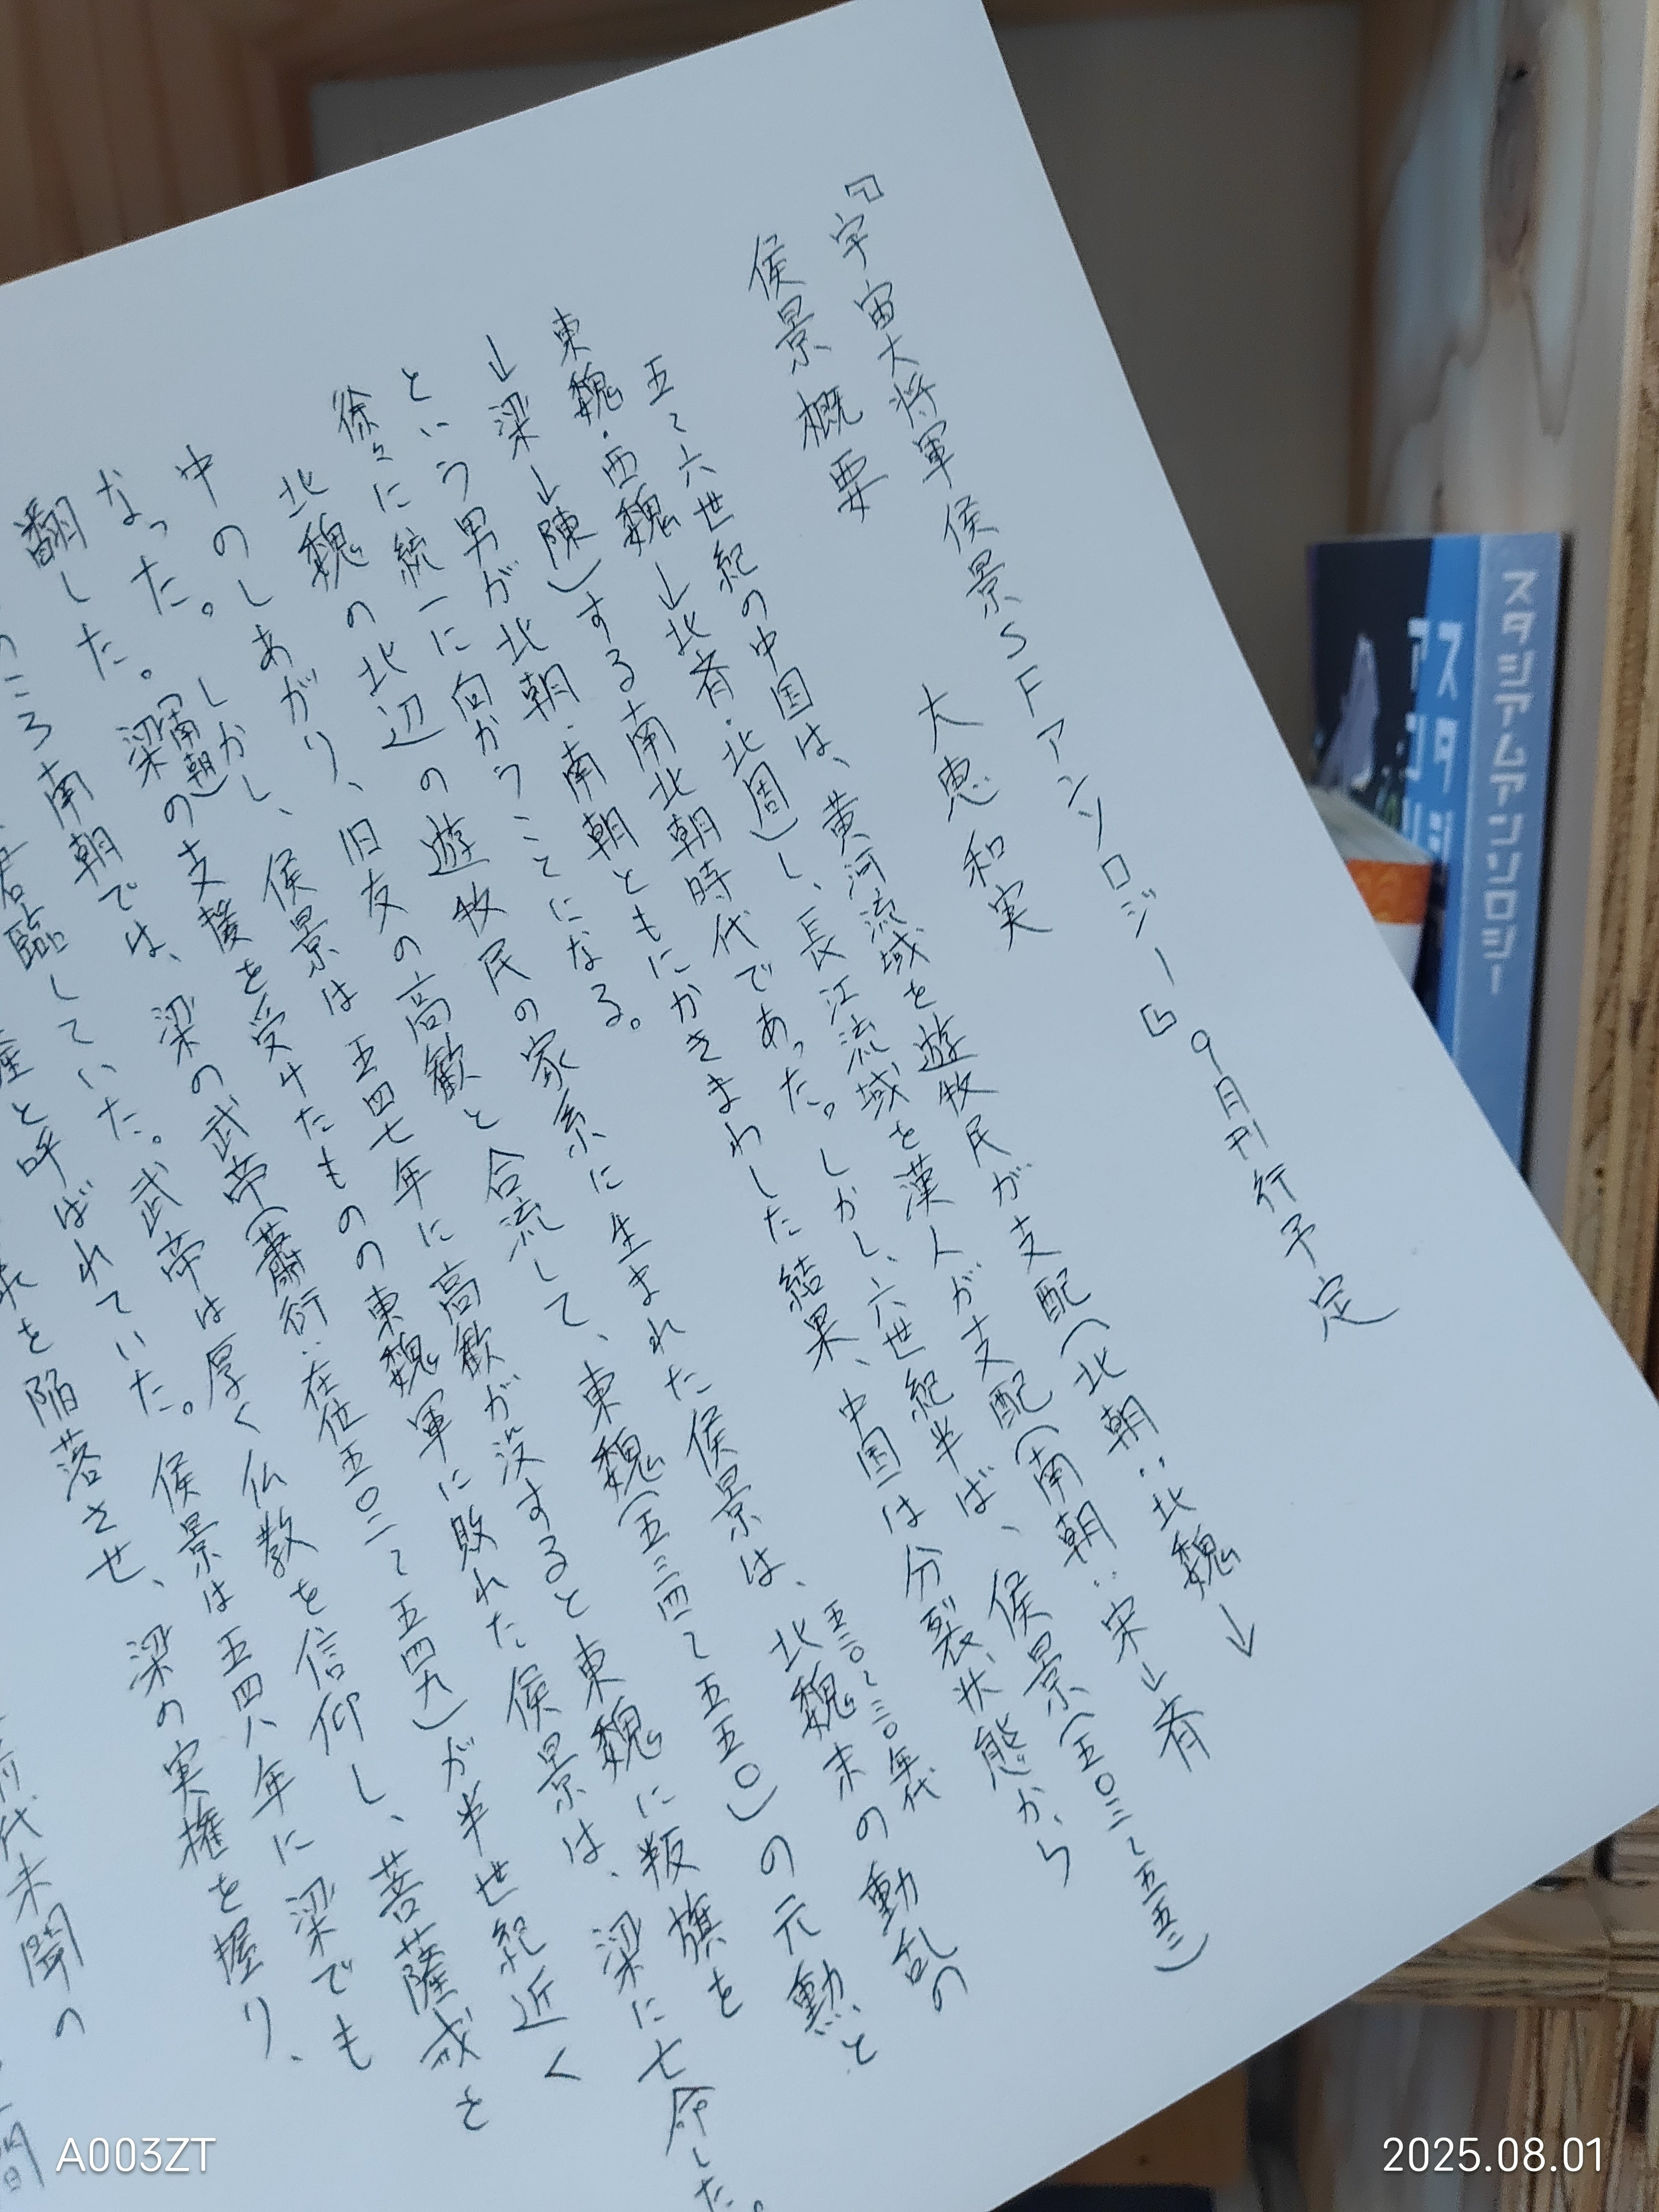 『宇宙大将軍侯景SFアンソロジー』9月刊行予定
侯景概要　大恵和実
五~六世紀の中国は、黄河流域を遊牧民が支配(北朝:北魏→
東魏・西魏→北斉・北周)し、長江流域を漢人が支配(南朝:宋→斉
→梁→陳)する南北朝時代であった。しかし、六世紀半ば、侯景(五〇三~五五二)
という男が北朝・南朝ともにかきまわした結果、中国は分裂状態から
徐々に統一に向かうことになる。
北魏の北辺の遊牧民の家系に生まれた侯景は、北魏末の動乱の
五二〇~三〇年代
中のしあがり、旧友の高歓と合流して、東魏(五三四~五五〇)の元勲と
なった。しかし、侯景は五四七年に高歓が没すると東魏に叛旗を
翻した。梁(南朝)の支援を受けたものの東魏軍に敗れた侯景は、梁に亡命した。
ころ南朝では、梁の武帝(蕭衍:在位五〇二~五四九)が半世紀近く
君臨していた。武帝は厚く仏教を信仰し、菩薩戒を
と呼ばれていた。侯景は五四八年に梁でも
を陥落させ、梁の実権を握り、
前代未聞の
スタジアムアンソロジー
A003ZT
2025.08.01